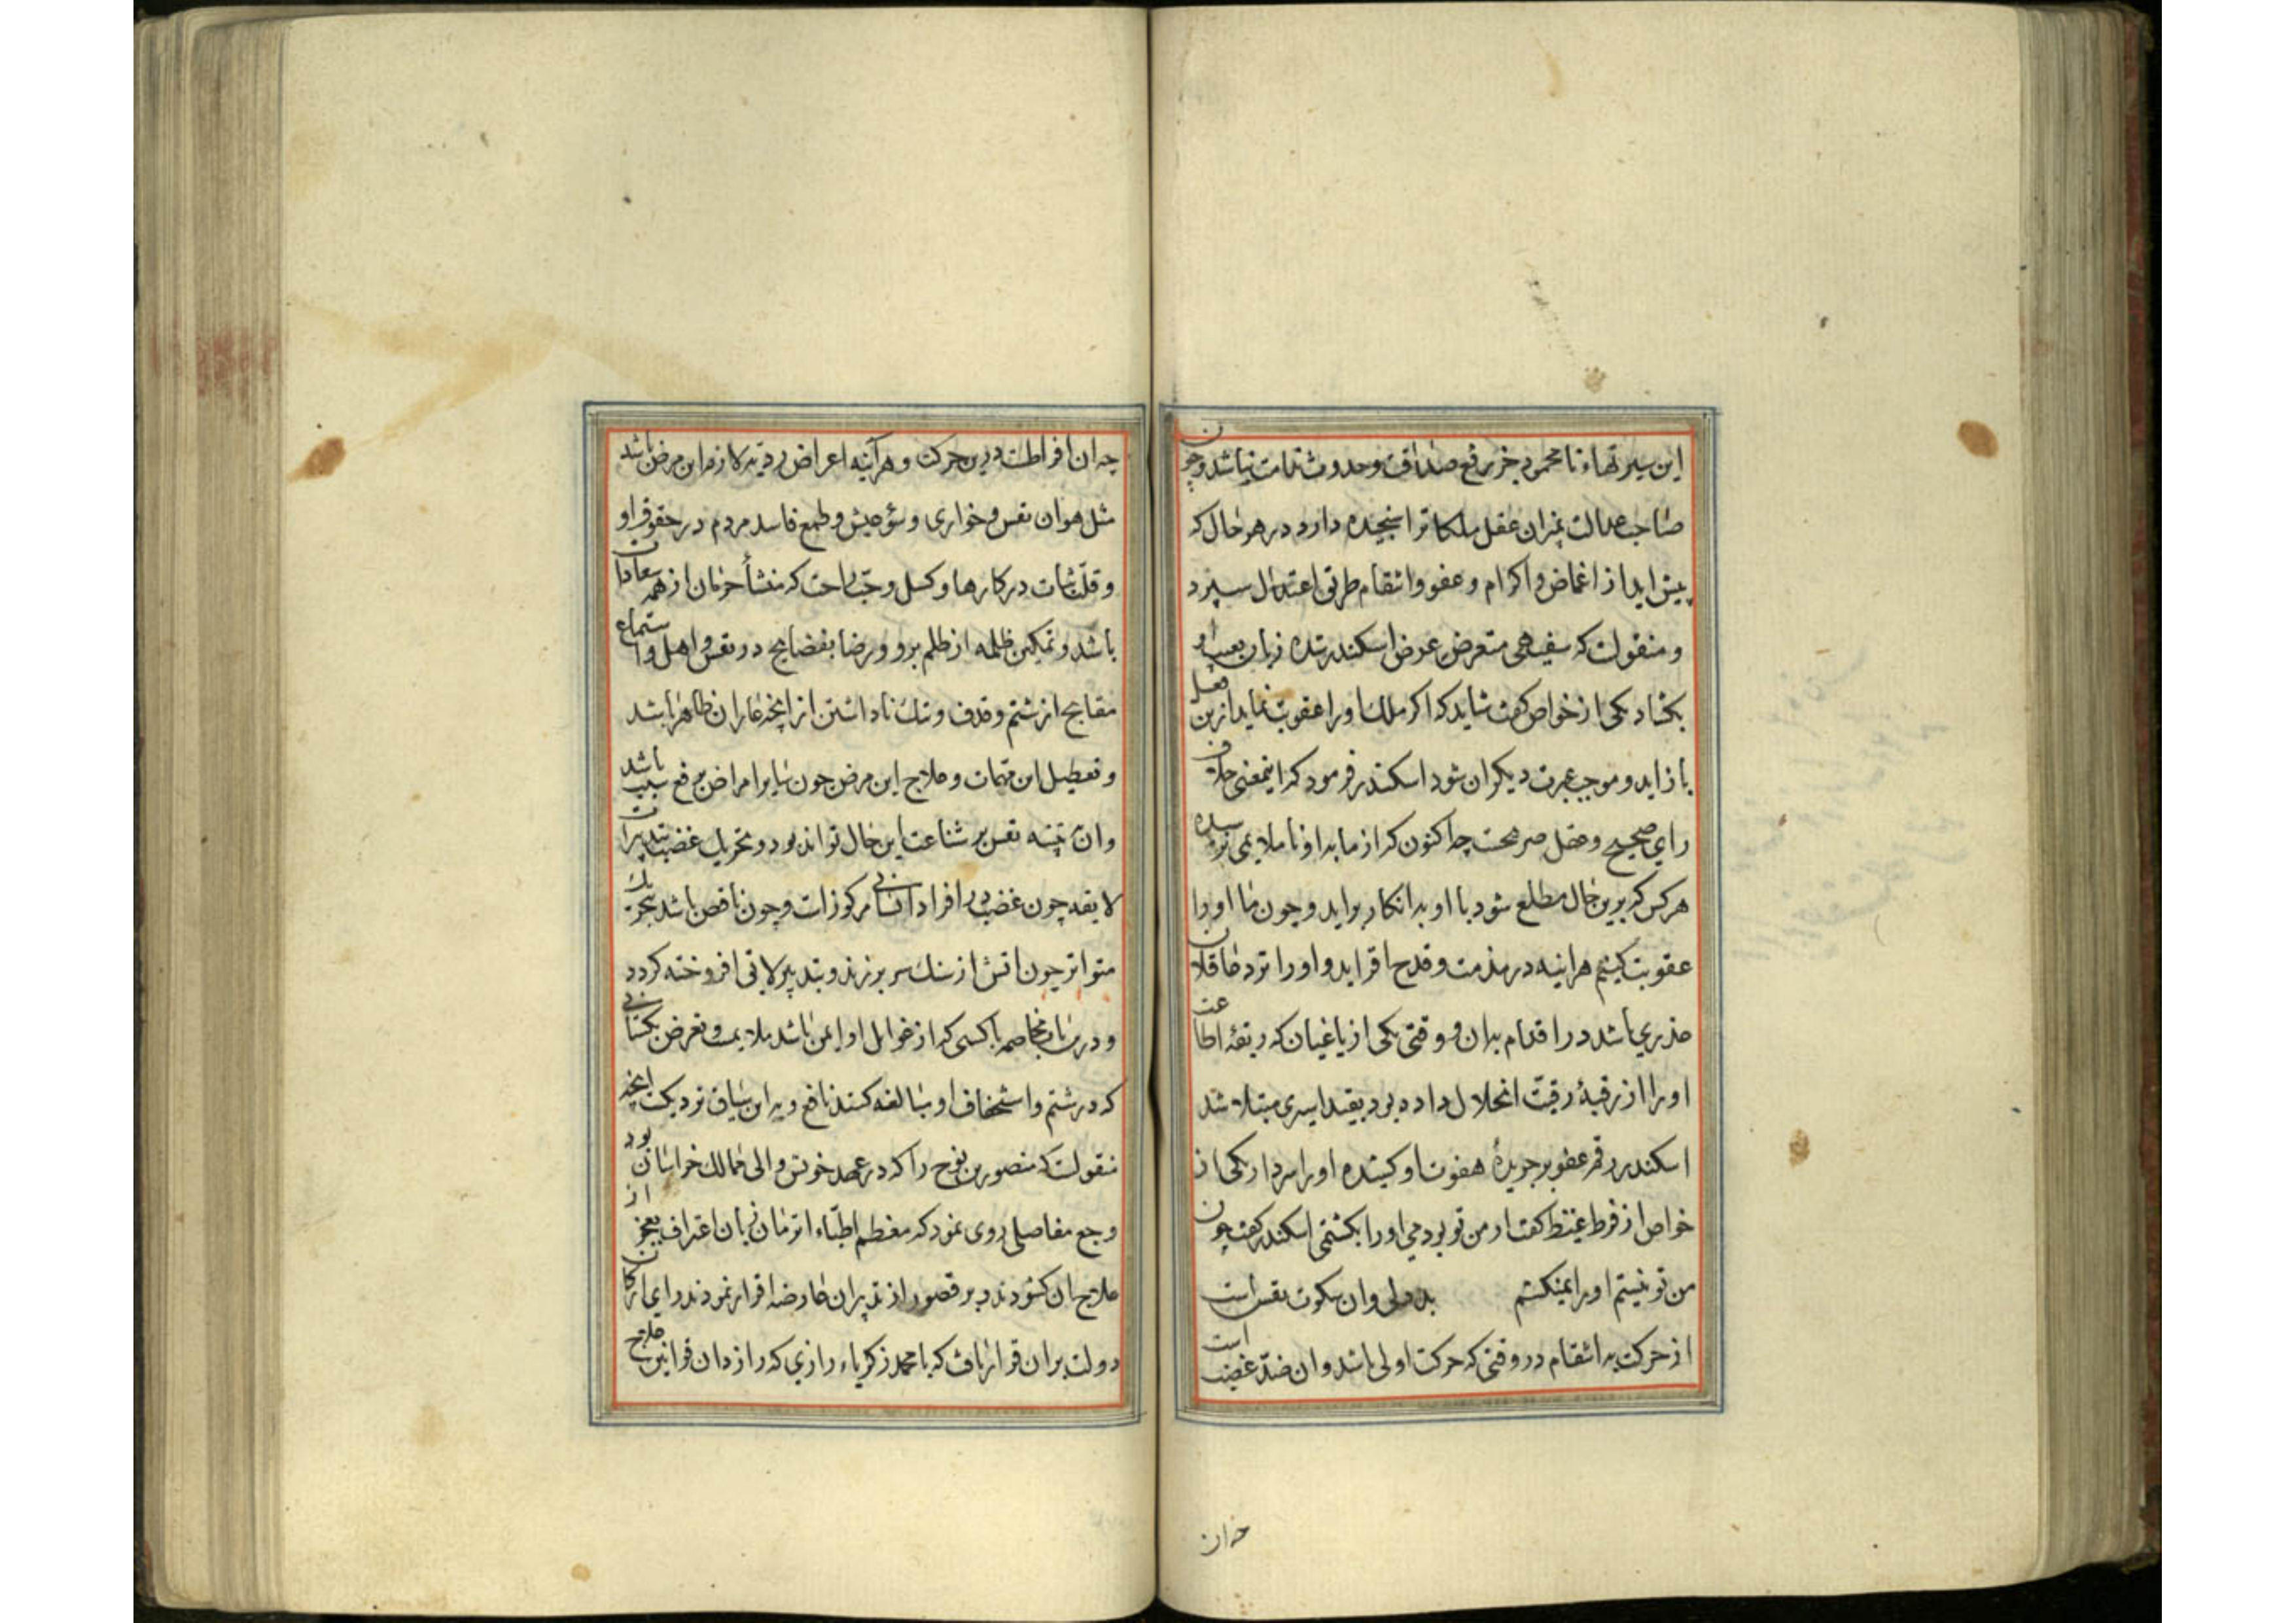 این سیرتهاء نا محمود جز رفع صداقت و حدوث ندامت نباشد و چون
صاحب عدالت بمیزان عقل ملکات را سنجیده دارد در هر حال که
پیش اید از اغماض و اکرام و عفو و انتقام طریق اعتدال سپرد
و منقولست که سفیهی متعرض عرض اسکندر شده زبان بعیب او
بکشاد یکی از خواص کفت شاید که اکر ملک او را عقوبت نماید ازین فعل
باز اید و موجب عبرت دیکران شود اسکندر فرمود که اینمعنی خلاف
رای صحیح و عقل صریحست چه اکنون که از ما بدو نا ملایمی نرسیده
هر کس که برین حال مطلع شود با او بد انکار براید و چون ما او را
عقوبت کنیم هراینه در مذمت و قدح افزاید و او را نزد عاقلان
عذری باشد در اقدام بدان و وقتی یکی از یاغیان که ربقهٔ اطاعت
او را از رقبهٔ رقیّت انحلال داده بود بقید اسیری مبتلا شد
اسکندر رقم عفو بر جریدهٔ هفوت او کشیده او را سر داد یکی از
خواص از فرط غیظ کفت ار من تو بودمی او را بکشتمی اسکندر کفت چون
من تو نیستم او را نمیکشم بد دلی و ان سکوت نفس است
از حرکت به انتقام در وقتی که حرکت اولی باشد و ان ضدّ غضب است
خه ان
چه ان افراطست درین حرکت و هرآینه اعراض ردیه که لازم این مرض باشد
مثل هوان نفس و خواری و سؤ عیش و طمع فاسد مردم در حقوق او
و قلّت ثبات در کارها و کسل و حبّ راحت که منشأ حرمان از همه سعادات
باشد و تمکین ظلمه از ظلم برو و رضا بفضایح در نفس و اهل و استماع
مقابح از شتم و قذف و ننک ناداشتن از انچه عار ان ظاهر باشد
و تعطیل این مهمات و علاج این مرض چون سایر امراض برفع سبب باشد
و ان تنبیه نفس بر شناعت این حال تواند بود و تحریک غضب بتدبیرات
لایقه چون غضب در افراد انسانی مرکوزات و چون ناقص باشد بتحریک
متواتر چون اتش از سنک سر برزند و بتدبیر لایق افروخته کردد
و درین باب مخاصمه با کسی که از غوایل او ایمن باشد ملایمت و تعرض بکسانی
که در شتم و استخفاف او مبالغه کنند نافع و به این سیاق نزدیکست انچه
منقولست که منصور بن نوح را که در عهد خویش والی ممالک خراسان بود
وجع مفاصلی روی نمود که معظم اطبّاء انزمان زبان اعتراف بعجز از
علاج ان کشودند و بر قصور از تدبیر ان عارضه اقرار نمودند رای ارکان
دولت بران قرار یافت که با محمد زکریاء رازی که رازدان قوانین علاج